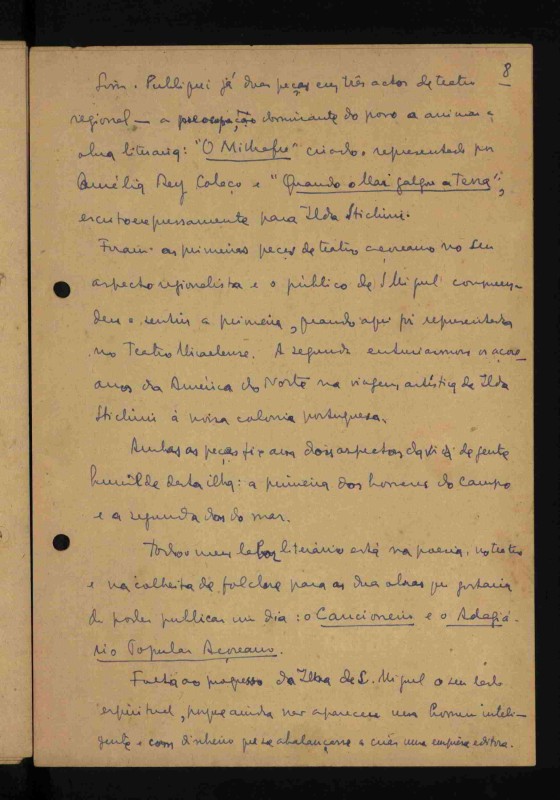 8
Sim. Publiquei já duas peças em três actos de teatro
regional — a preocupação dominante do povo a animar a
alma literaria: "O Milhafre" criado e representado por
Amélia Rey Colaço e "Quando o Mar galgou a Terra",
escrito expressamente para Ilda Stichini.
Foram as primeiras peças de teatro açoreano no seu
aspecto regionalista e o público de S. Miguel compreen-
deu e sentiu a primeira, quando aqui foi representada
no Teatro Micaelense. A segunda entusiasmou os açore-
anos da América do Norte na viagem artística de Ilda
Stichini á nossa colonia portuguesa.
Ambas as peças fixam dois aspectos da vida da gente
humilde desta ilha: a primeira dos homens do campo
e a segunda dos do mar.
Todo o meu labor literário está na poesia, no teatro
e na colheita de folclore para as duas obras que gostaria
de poder publicar um dia: o Cancioneiro e o Adagiá-
rio Popular Açoreano.
Falta ao progresso da Ilha de S. Miguel o seu lado
espiritual, porque ainda não apareceu um homem inteli-
gente e com dinheiro que se abalançasse a criar uma empresa editora.